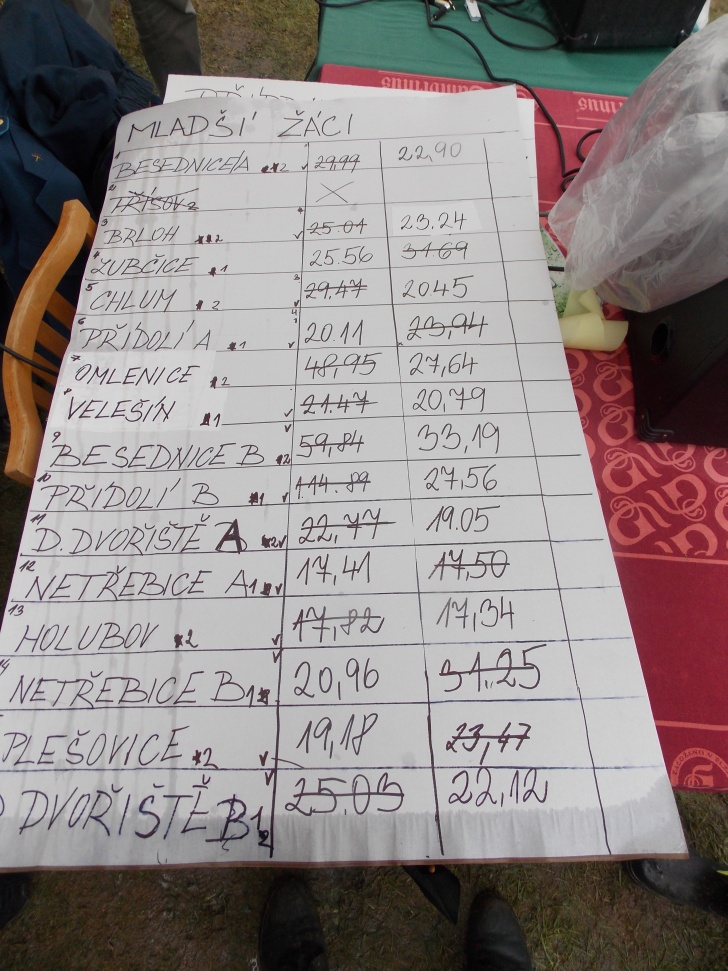 MLADŠÍ ŽÁCI
1 BESEDNICE/A 2 29,99 22,90
2 TŘÍSOV 2 X
3 BRLOH 2 25.01 23.24
4 ZUBČICE 1 25.56 31.69
5 CHLUM 2 29,47 20.45
6 PŘÍDOLÍ A 1 20.11 23,94
7 OMLENICE 2 48,95 27,64
8 VELEŠÍN 1 21.47 20,79
9 BESEDNICE B 2 59,84 33,19
10 PŘÍDOLÍ B 1 1:14.89 27,56
11 D.DVOŘIŠTĚ A 2 22,77 19.05
12 NETŘEBICE A 1 17,41 17,50
13 HOLUBOV 2 17,82 17,34
14 NETŘEBICE B 1 20,96 31,25
PLEŠOVICE 2 19,18 23,47
DVOŘIŠTĚ B 1 2 25.03 22,12